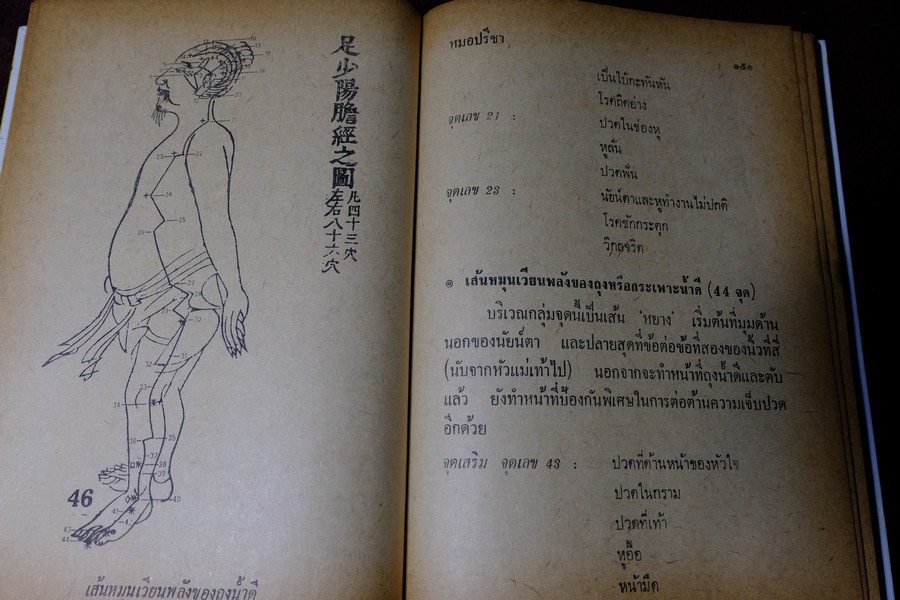 足少陽膽經之圖
凡四十三穴
左右八十六穴
46
เส้นหมุนเวียนพลังของถุงน้ำดี
หมอปรีชา
๑๕๐
เป็นใบ้กะทันหัน
โรคถิดอ่าง
จุดเลข 21 :
ปวดในช่องหู
หูลั่น
ปวดฟัน
จุดเลข 23 :
นัยน์ตาและหูทำงานไม่ปกติ
โรคชักกระตุก
วิกลจริต
๏ เส้นหมุนเวียนพลังของถุงหรือกระเพาะน้ำดี (44 จุด)
บริเวณกลุ่มจุดนี้เป็นเส้น 'หยาง' เริ่มต้นที่มุมด้าน
นอกของนัยน์ตา และปลายสุดที่ข้อต่อข้อที่สองของนิ้วที่สี่
(นับจากหัวแม่เท้าไป) นอกจากจะทำหน้าที่ถุงน้ำดีและตับ
แล้ว ยังทำหน้าที่ป้องกันพิเศษในการต่อต้านความเจ็บปวด
อีกด้วย
จุดเสริม จุดเลข 43 : ปวดที่ด้านหน้าของหัวใจ
ปวดในกราม
ปวดที่เท้า
หูอื้อ
หน้ามืด